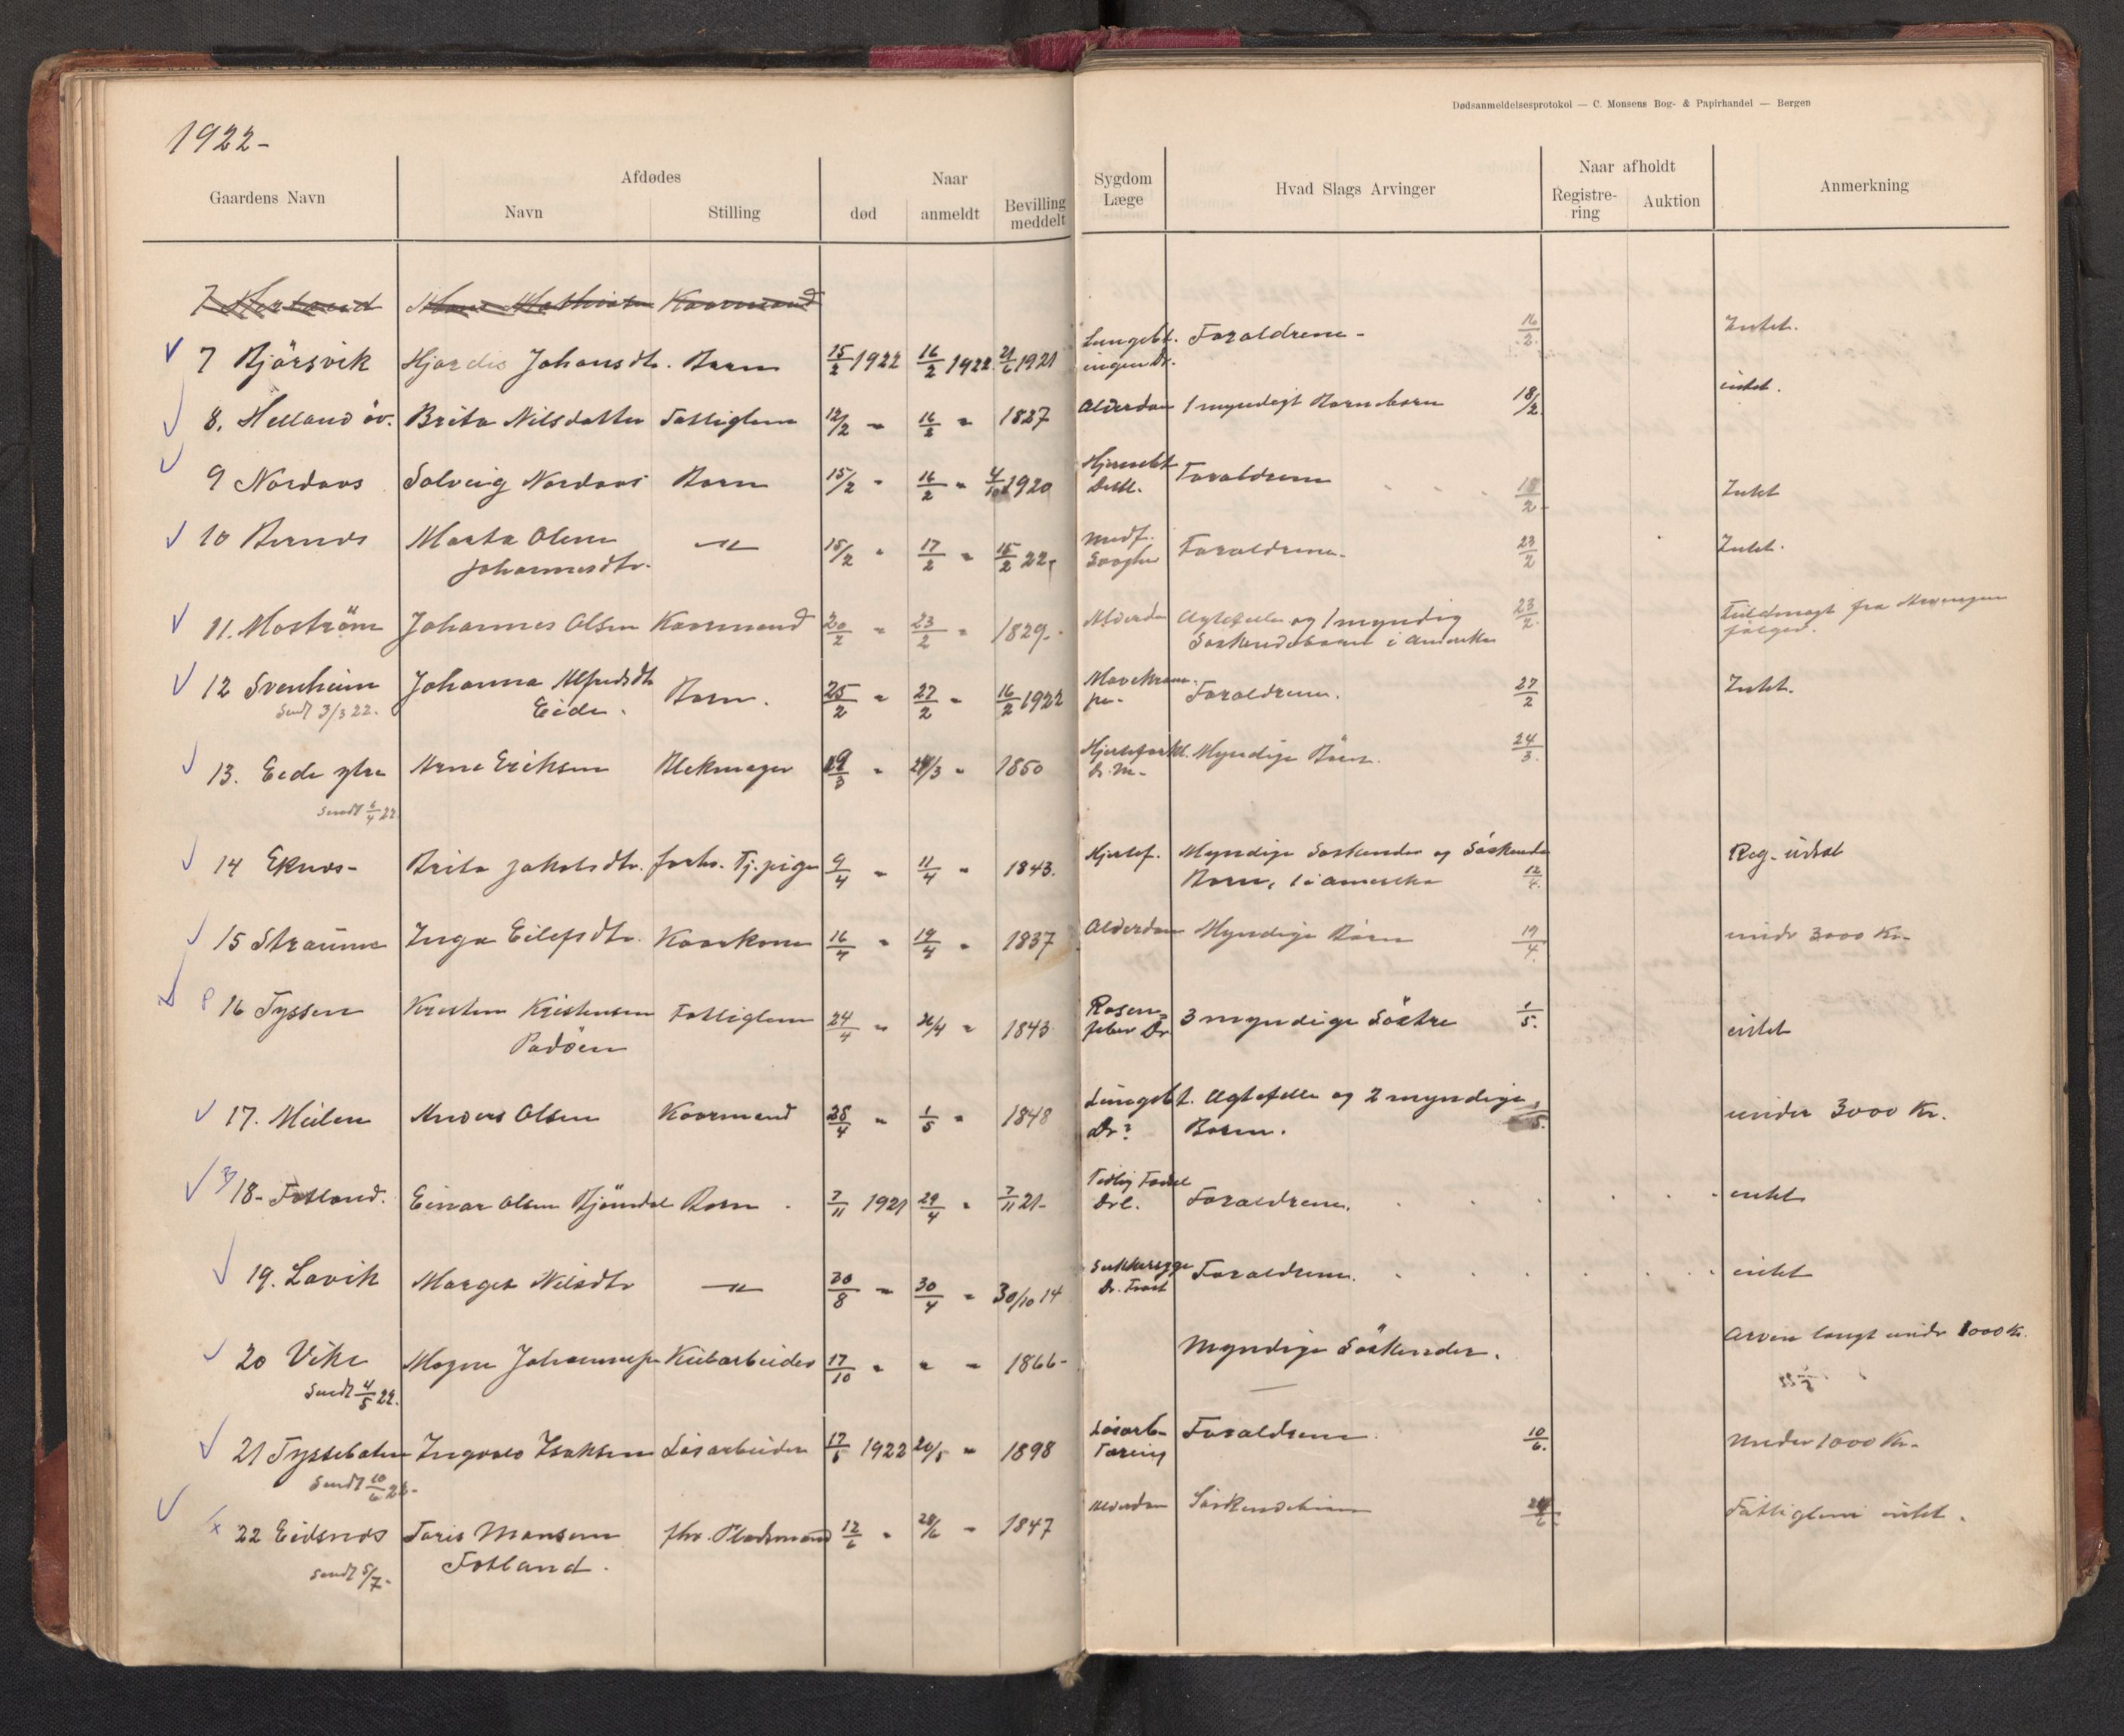 Dødsanmeldelsesprotokol — C. Monsens Bog- & Papirhandel — Bergen
1922-
Gaardens Navn
Afdødes
Navn
Stilling
Naar
død
anmeldt
Bevilling meddelt
Sygdom Læge
Hvad Slags Arvinger
Naar afholdt
Registre-ring
Auktion
Anmerkning
Kaarmand
7 Bjørsvik Hjørdis Johansdtr. Barn 15/2 1922 16/2 1922 21/6 1921 Lungebt. Foraldrene - 16/2 Intet.
ingen Dr.
8. Helland öv. Brita Nilsdatter Fattiglem 12/2 " 16/2 " 1827 Alderdom 1 myndigt Barnebarn 18/2 intet.
9 Nordaas Solveig Nordaas Barn 15/2 " 16/2 " 1920 Foraldrene 18/2 Intet
10 Marta Olene 15/2 " 17/2 " 15/2 22- medf. Foraldrene. 23/2 Intet.
Johannesdtr. Svaghed
11. Moström Johannes Olsen Kaarmand 20/2 " 23/2 " 1829. Alderdom Ægtefelle og 1 myndig 23/2 Fuldmagt fra
Söskendebarn i Amerika følger.
12 Svenheim Johanna Alfredsdtr Barn. 25/2 " 27/2 " 16/2 1922 Mavekram- Foraldrene. 27/2 Intet.
Sendt 3/3 22. Eide. pe-
13. Eide ytre Arne Eriksen Blekmager 19/3 " 24/3 " 1850 Hjertefeil. Myndige Børn. 24/3.
Sendt 6/4 22 Dr. M-
14 Eknes- Brita Jakobsdtr. forhv. Tj. pige 9/4 " 11/4 " 1843. Hjertef. Myndige Söskende og Söskende Reg. udsat
Børn, 1 i Amerika 12/4.
15 Straume Inga Eilefsdtr. Kaarkone 16/4 " 19/4 " 1837 Alderdom Myndige Børn 19/4 under 3000 Kr-
16 Tyssen Kristen Kristensen Fattiglem 24/4 " 26/4 " 1843 Rosen- 3 myndige Söstre 1/5. intet
Padöen feber Dr
17. Anders Olsen Kaarmand 28/4 " 1/5 " 1848 Lungebt. Ægtefelle og 2 myndige 1/5. under 3000 Kr.
Dr? Børn.
18- Fotland. Einar Olsen Bjöndal Barn 7/11 1921 29/4 " 7/11 21- Tidlig Födsel Foraldrene. intet
19. Lavik Marget Nilsdtr 30/8 " 30/4 " 30/10 14 Sukkersyge Foraldrene. intet
20 Vike Mogne Kulearbeider 17/10 " " " 1866- Myndige Söskender. Arven langt under 1000 Kr.
Sendt 4/5 22.
21 Tyssebotn Ingvald Isaksen Løsarbeider 17/5 1922 20/5 " 1898 Foraldrene. 10/6. Under 1000 Kr-
Sendt 10/6 22- Tæring
22 Eidsnes Toris Monsen fhv. Pladsmand 12/6 " 28/6 " 1847 Alderdom Söskendebørn Fattiglem intet.
Sendt 5/7- Fotland.